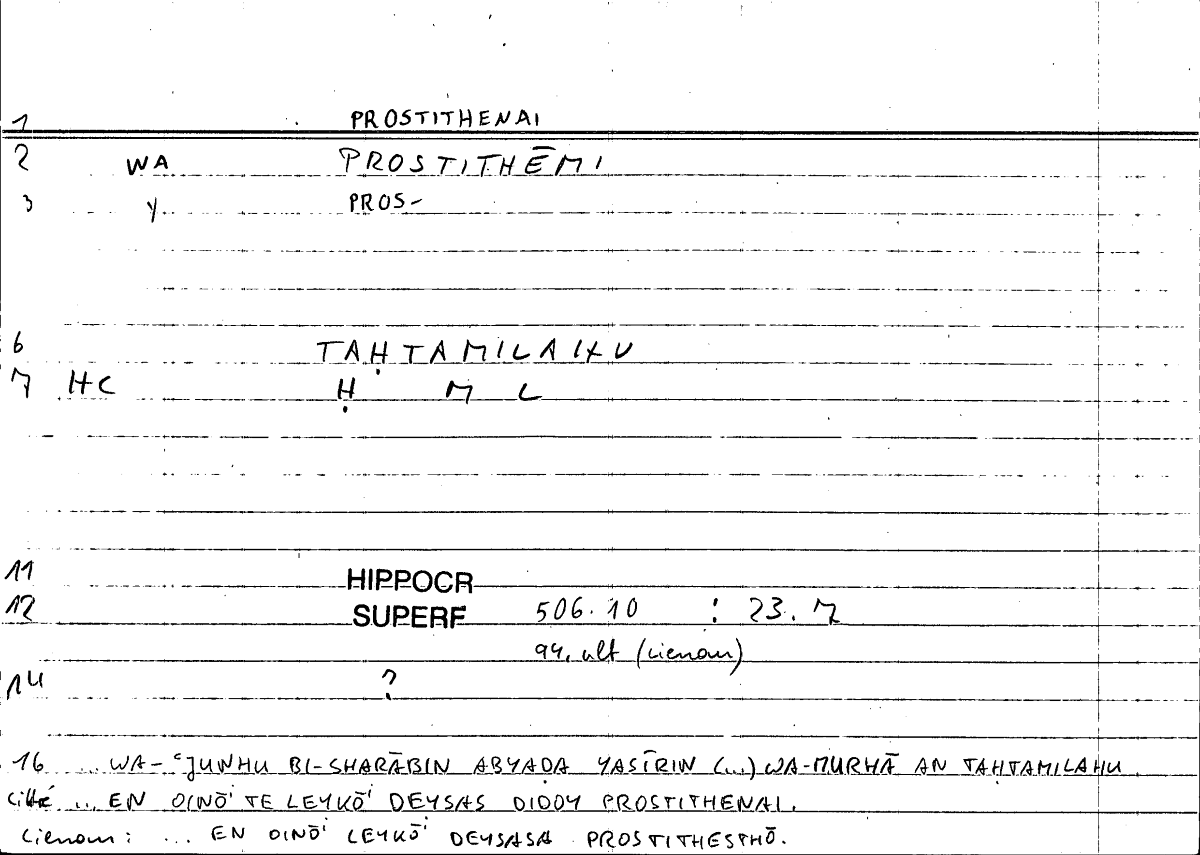 1 PROSTITHENAI
2 WA PROSTITHĒMI
3 Y PROS-
6 TAḤTAMILAHU
7 HC Ḥ M L
11 HIPPOCR
12 SUPERF 506.10 : 23.7
94, ult (Lienau)
14 ?
16 ... WA-ʿJUNHU BI-SHARĀBIN ABYAḌA YASĪRIN (...) WA-MURHĀ AN TAḤTAMILAHU
Littré ... EN OINŌⁱ TE LEYKŌⁱ DEYSAS DIDOY PROSTITHENAI.
Lienau: ... EN OINŌⁱ LEYKŌⁱ DEYSASA PROSTITHESTHŌ.